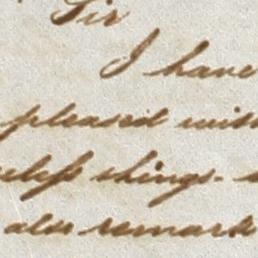 Sir
I have
pleased with
eless things -
also remark